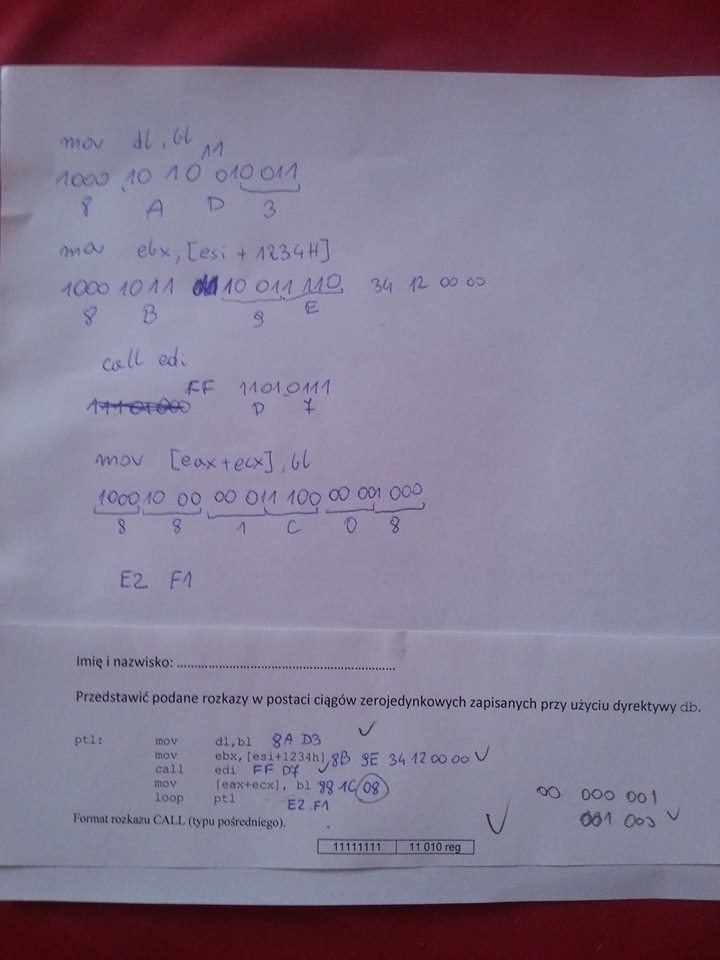 mov dl, bl
11
1000 10 10 010 011
8 A D 3
mov ebx, [esi + 1234H]
1000 10 11 10 011 110 34 12 00 00
8 B 9 E
call edi
FF 11010111
D 7
mov [eax+ecx], bl
1000 10 00 00 011 100 00 001 000
8 8 1 C 0 8
E2 F1
Imię i nazwisko: ............................................................
Przedstawić podane rozkazy w postaci ciągów zerojedynkowych zapisanych przy użyciu dyrektywy db.
ptl: mov dl,bl 8A D3
mov ebx,[esi+1234h] 8B 9E 34 12 00 00
call edi FF D7
mov [eax+ecx], bl 88 1C 08
loop ptl E2 F1
00 000 001
001 000
Format rozkazu CALL (typu pośredniego).
11111111 11 010 reg